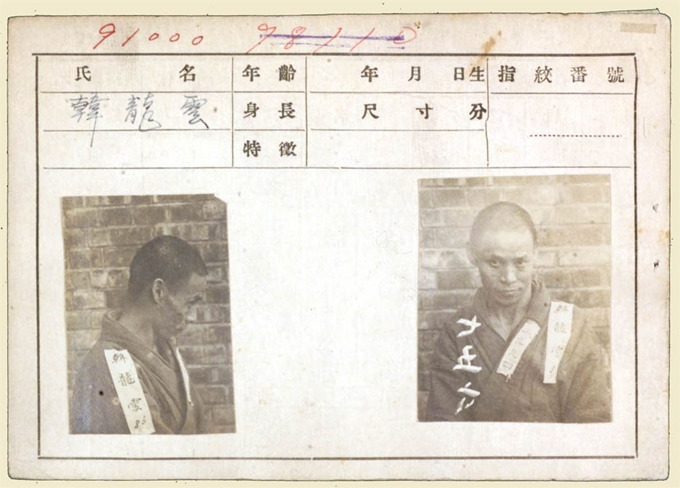 91000 78110
氏名 年齡 年月日生 指紋番號
韓龍雲 身長 尺寸分
特徵
韓龍雲
大正
韓龍雲